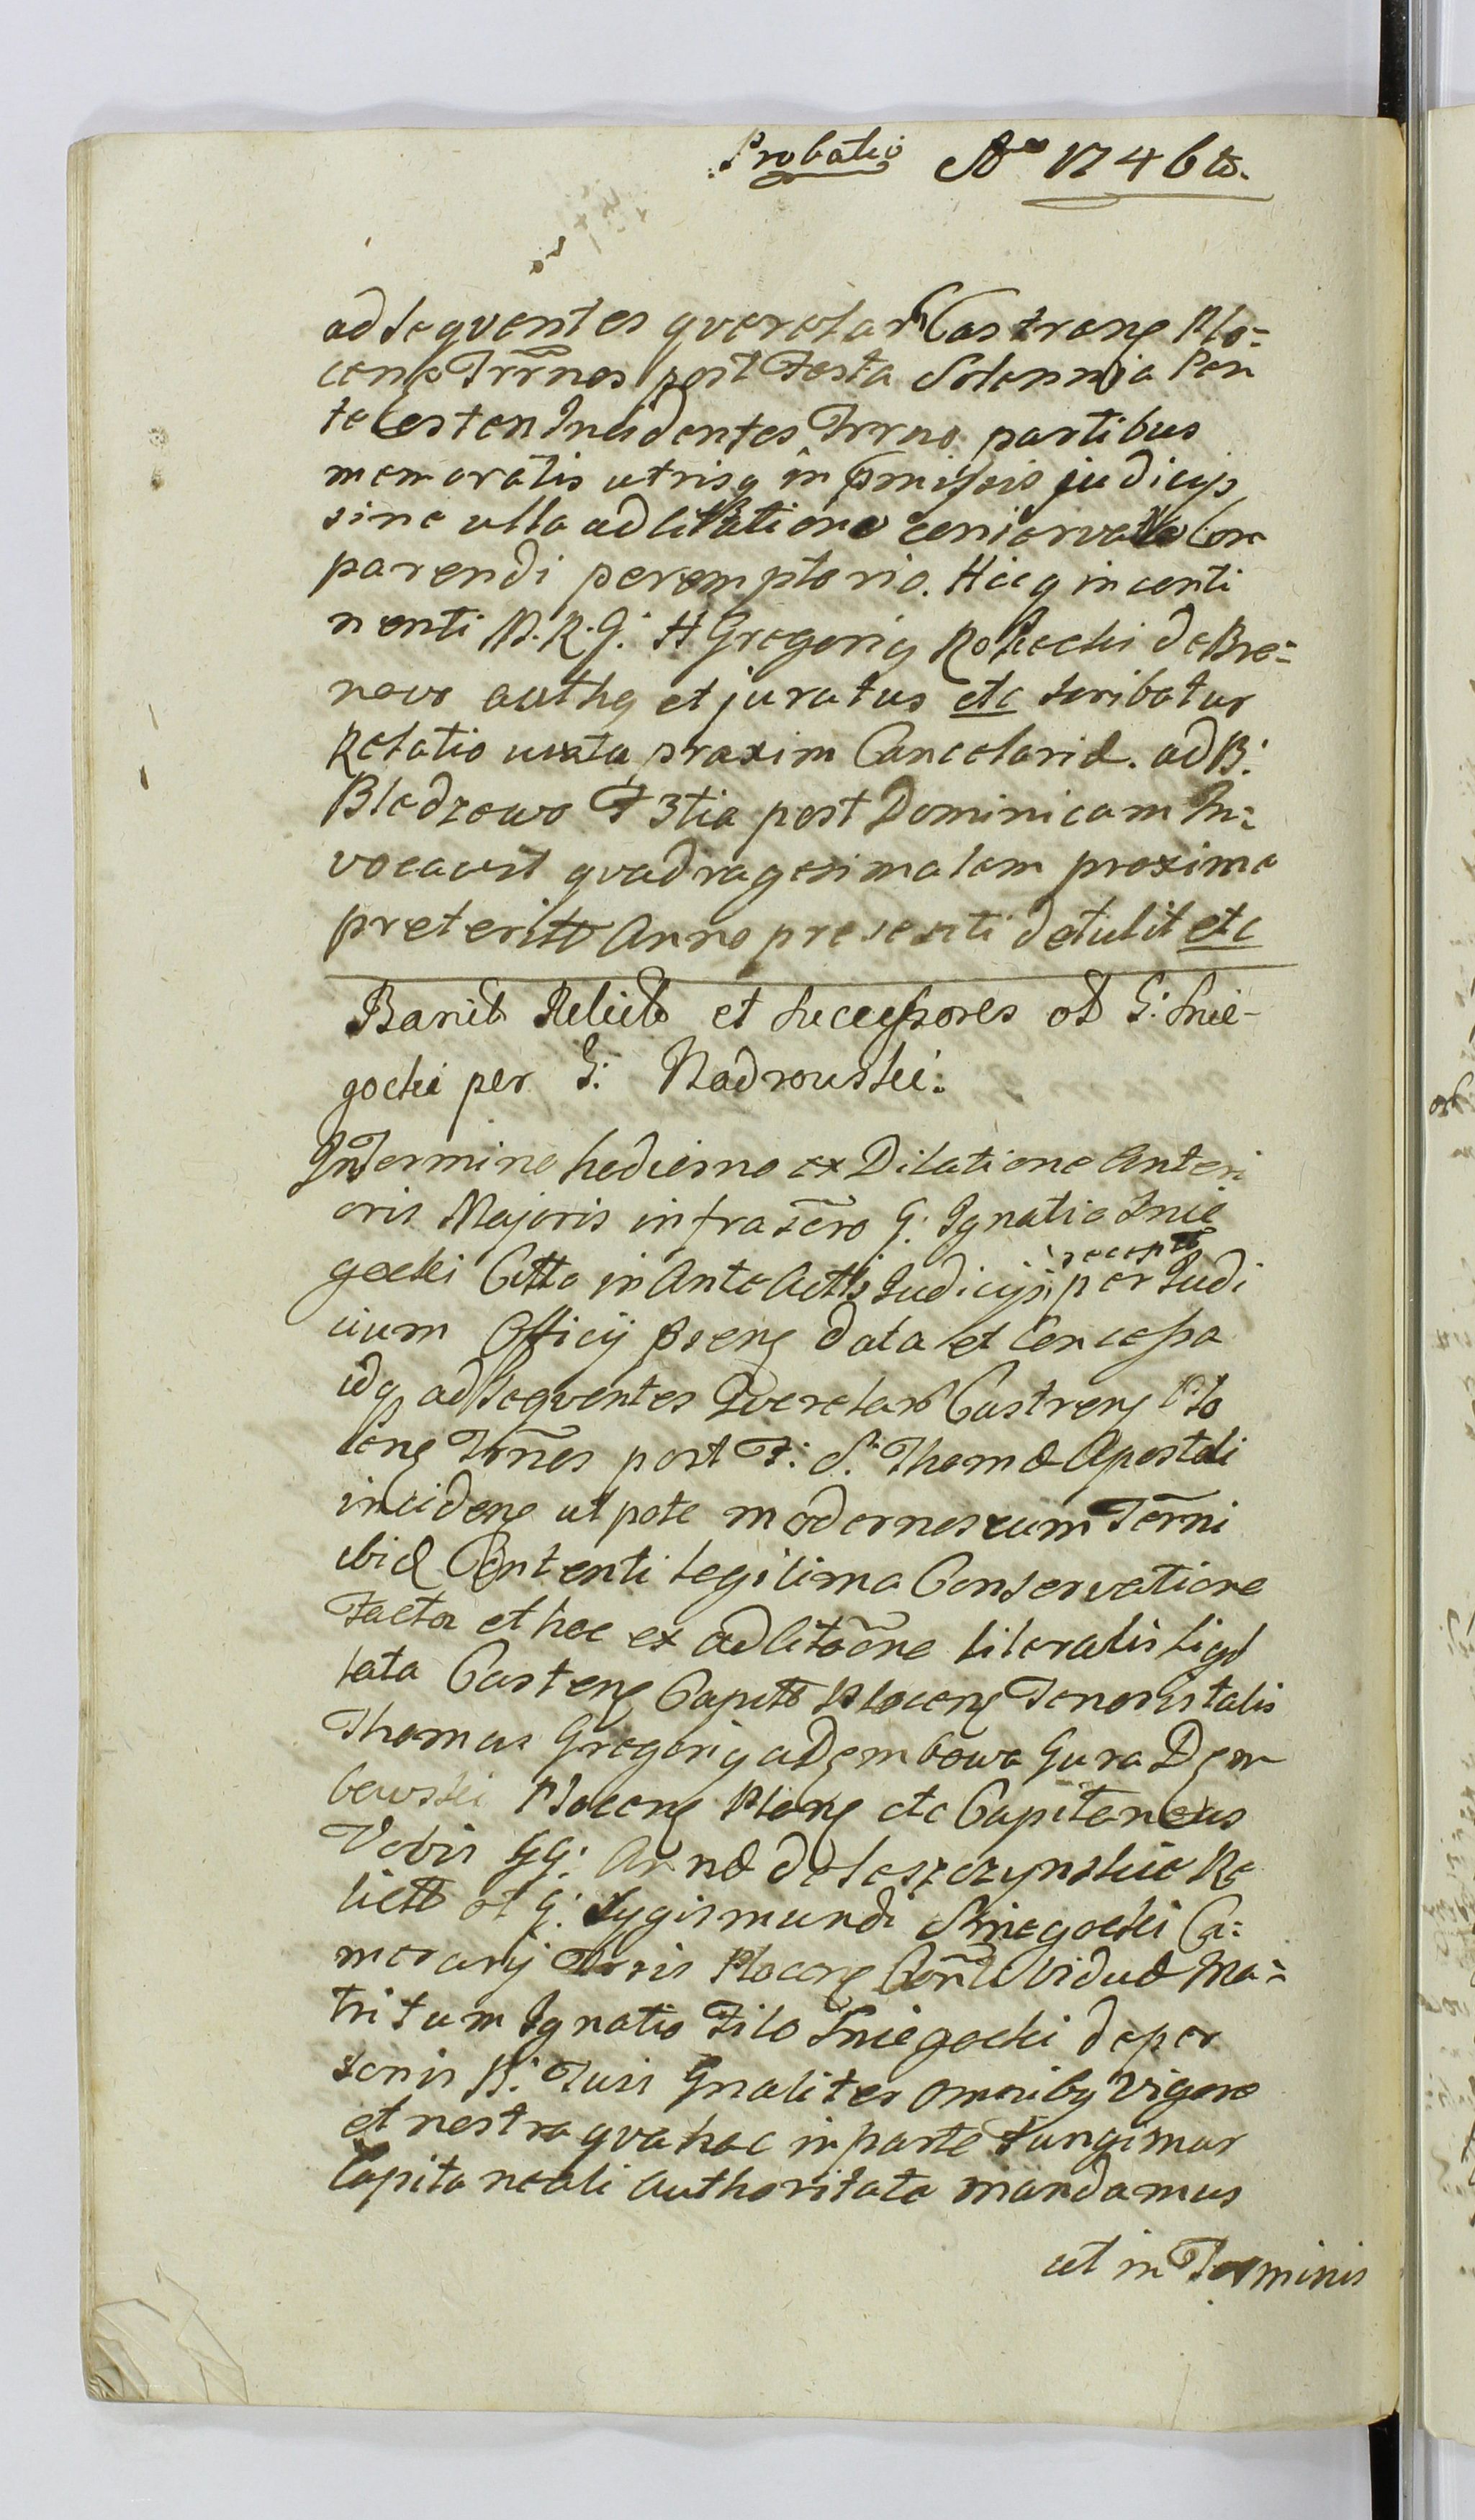 Probatio Ao 1746to.
ad sequentes querelar Castrens Plo=
cens Trrnos post Festa Solennia Pen
tecosten Incidentes Trrno partibus
memoratis utrisq in pmissis judicijs
sine ulla adcitatione conservato Com
parendi peremptorio. Hicq inconti
nenti M.R.G. H Gregorig Rokicki de Bro=
nowo authg et juratus etc scribatur
Relatio iuxta praxim Cancelariæ. ad B:
Bledzowo F 3tia post Dominicam In=
vocavit quadragesimalem proxime
preterito Anno presenti detulit etc
Banit Relictæ et Successores ol G: Snie-
gocki per G: Nadrouski:
In Termino hodierno ex Dilatione Anteri
oris Majoris infrascro G: Ignatio Snie
gocki Citto in Anteactis Judicijs recepta per Judi
cium Officij pseng data et Concessa
idq ad sequentes Querelar Castreng Plo
ceng Trrnos post F: S. Thomæ Apostoli
incideng utpote modernos cum Terni
ibid Contenti legitima Conservatione
Facta et hoc ex adcitaone literali sigil
lata Castreng Capitt Ploceng Tenoris talis
Thomas Gregorig a Dembowa Gura Dem
bowski Ploceng Plong etc Capitaneus
Vobis GG: Annæ de Leszczynskie Re
lictæ ol G: Sygismundi Sniegocki Ca=
merarij Trris Ploceng Conthi viduæ Ma=
tri tum Ignatio Filo Sniegocki de per
sonis B: Suis Gnaliter omnibg vigore
et nostra qua hac in parte Fungimur
Capitaneali Authoritate mandamus
ut in Terminis